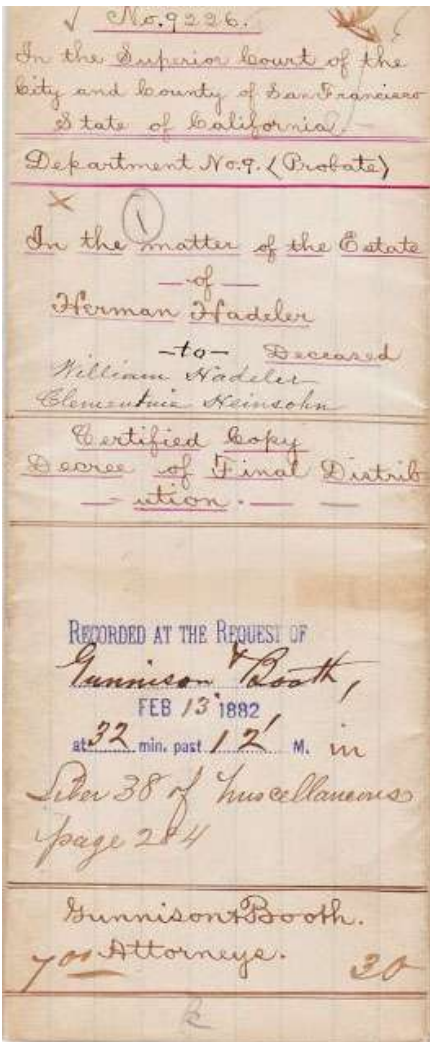 No. 9226.
In the Superior Court of the
City and County of San Francisco
State of California
Department No. 9. (Probate)
1
In the matter of the Estate
—of—
Herman Hadeler
—to— Deceased
William Hadeler
Clementnie Heinsohn
Certified Copy
Decree of Final Distrib
— ution. — —
RECORDED AT THE REQUEST OF
Gunnison & Booth,
FEB 13 1882
at 32 min. past 12 M. in
Liber 38 of Miscellaneous
page 284
Gunnison & Booth.
7 00 Attorneys. 30